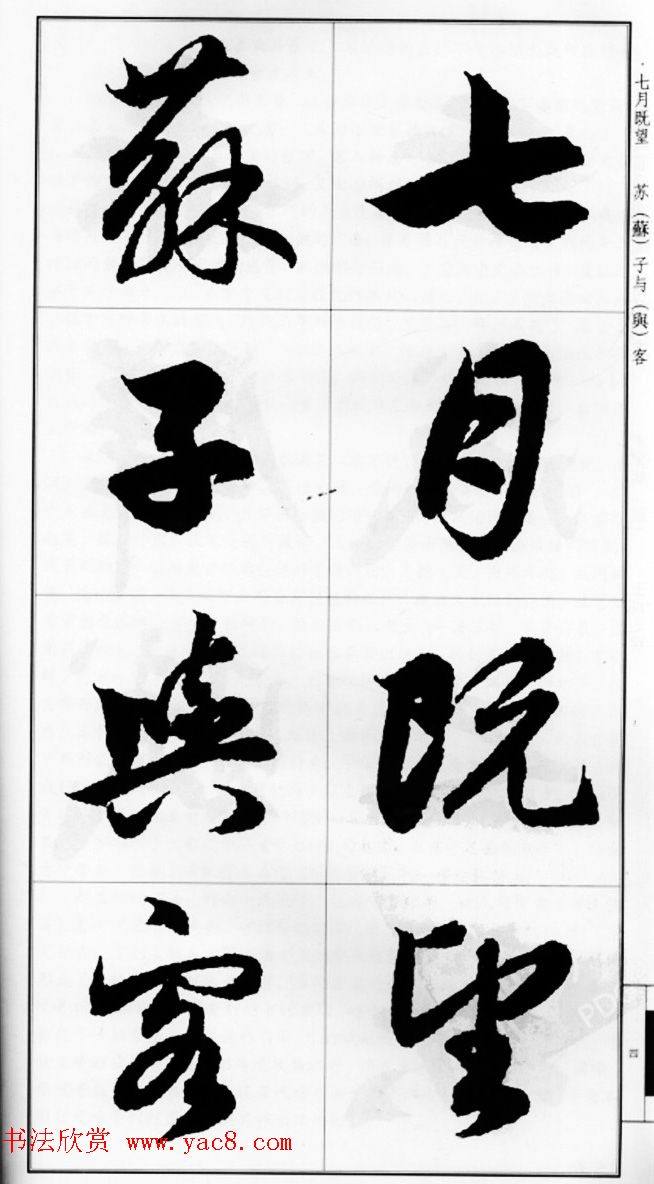 七月既望
蘇子與客
·七月既望 苏（蘇）子与（與）客
四
书法欣赏 www.yac8.com